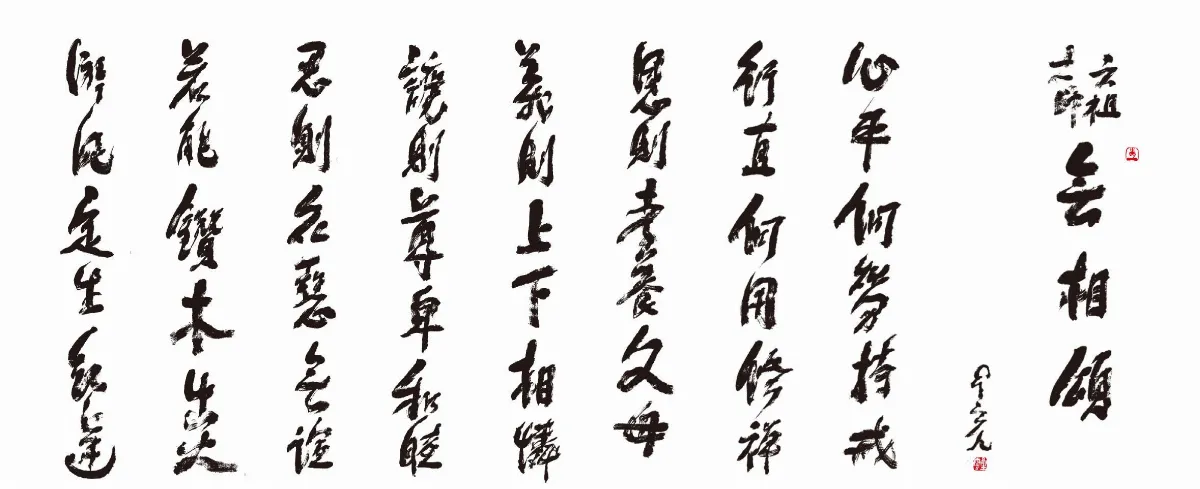 六祖
大師
無相頌
心平何勞持戒
行直何用修禪
恩則孝養父母
義則上下相憐
讓則尊卑和睦
忍則衆惡無諠
若能鑽木出火
淤泥定生紅蓮